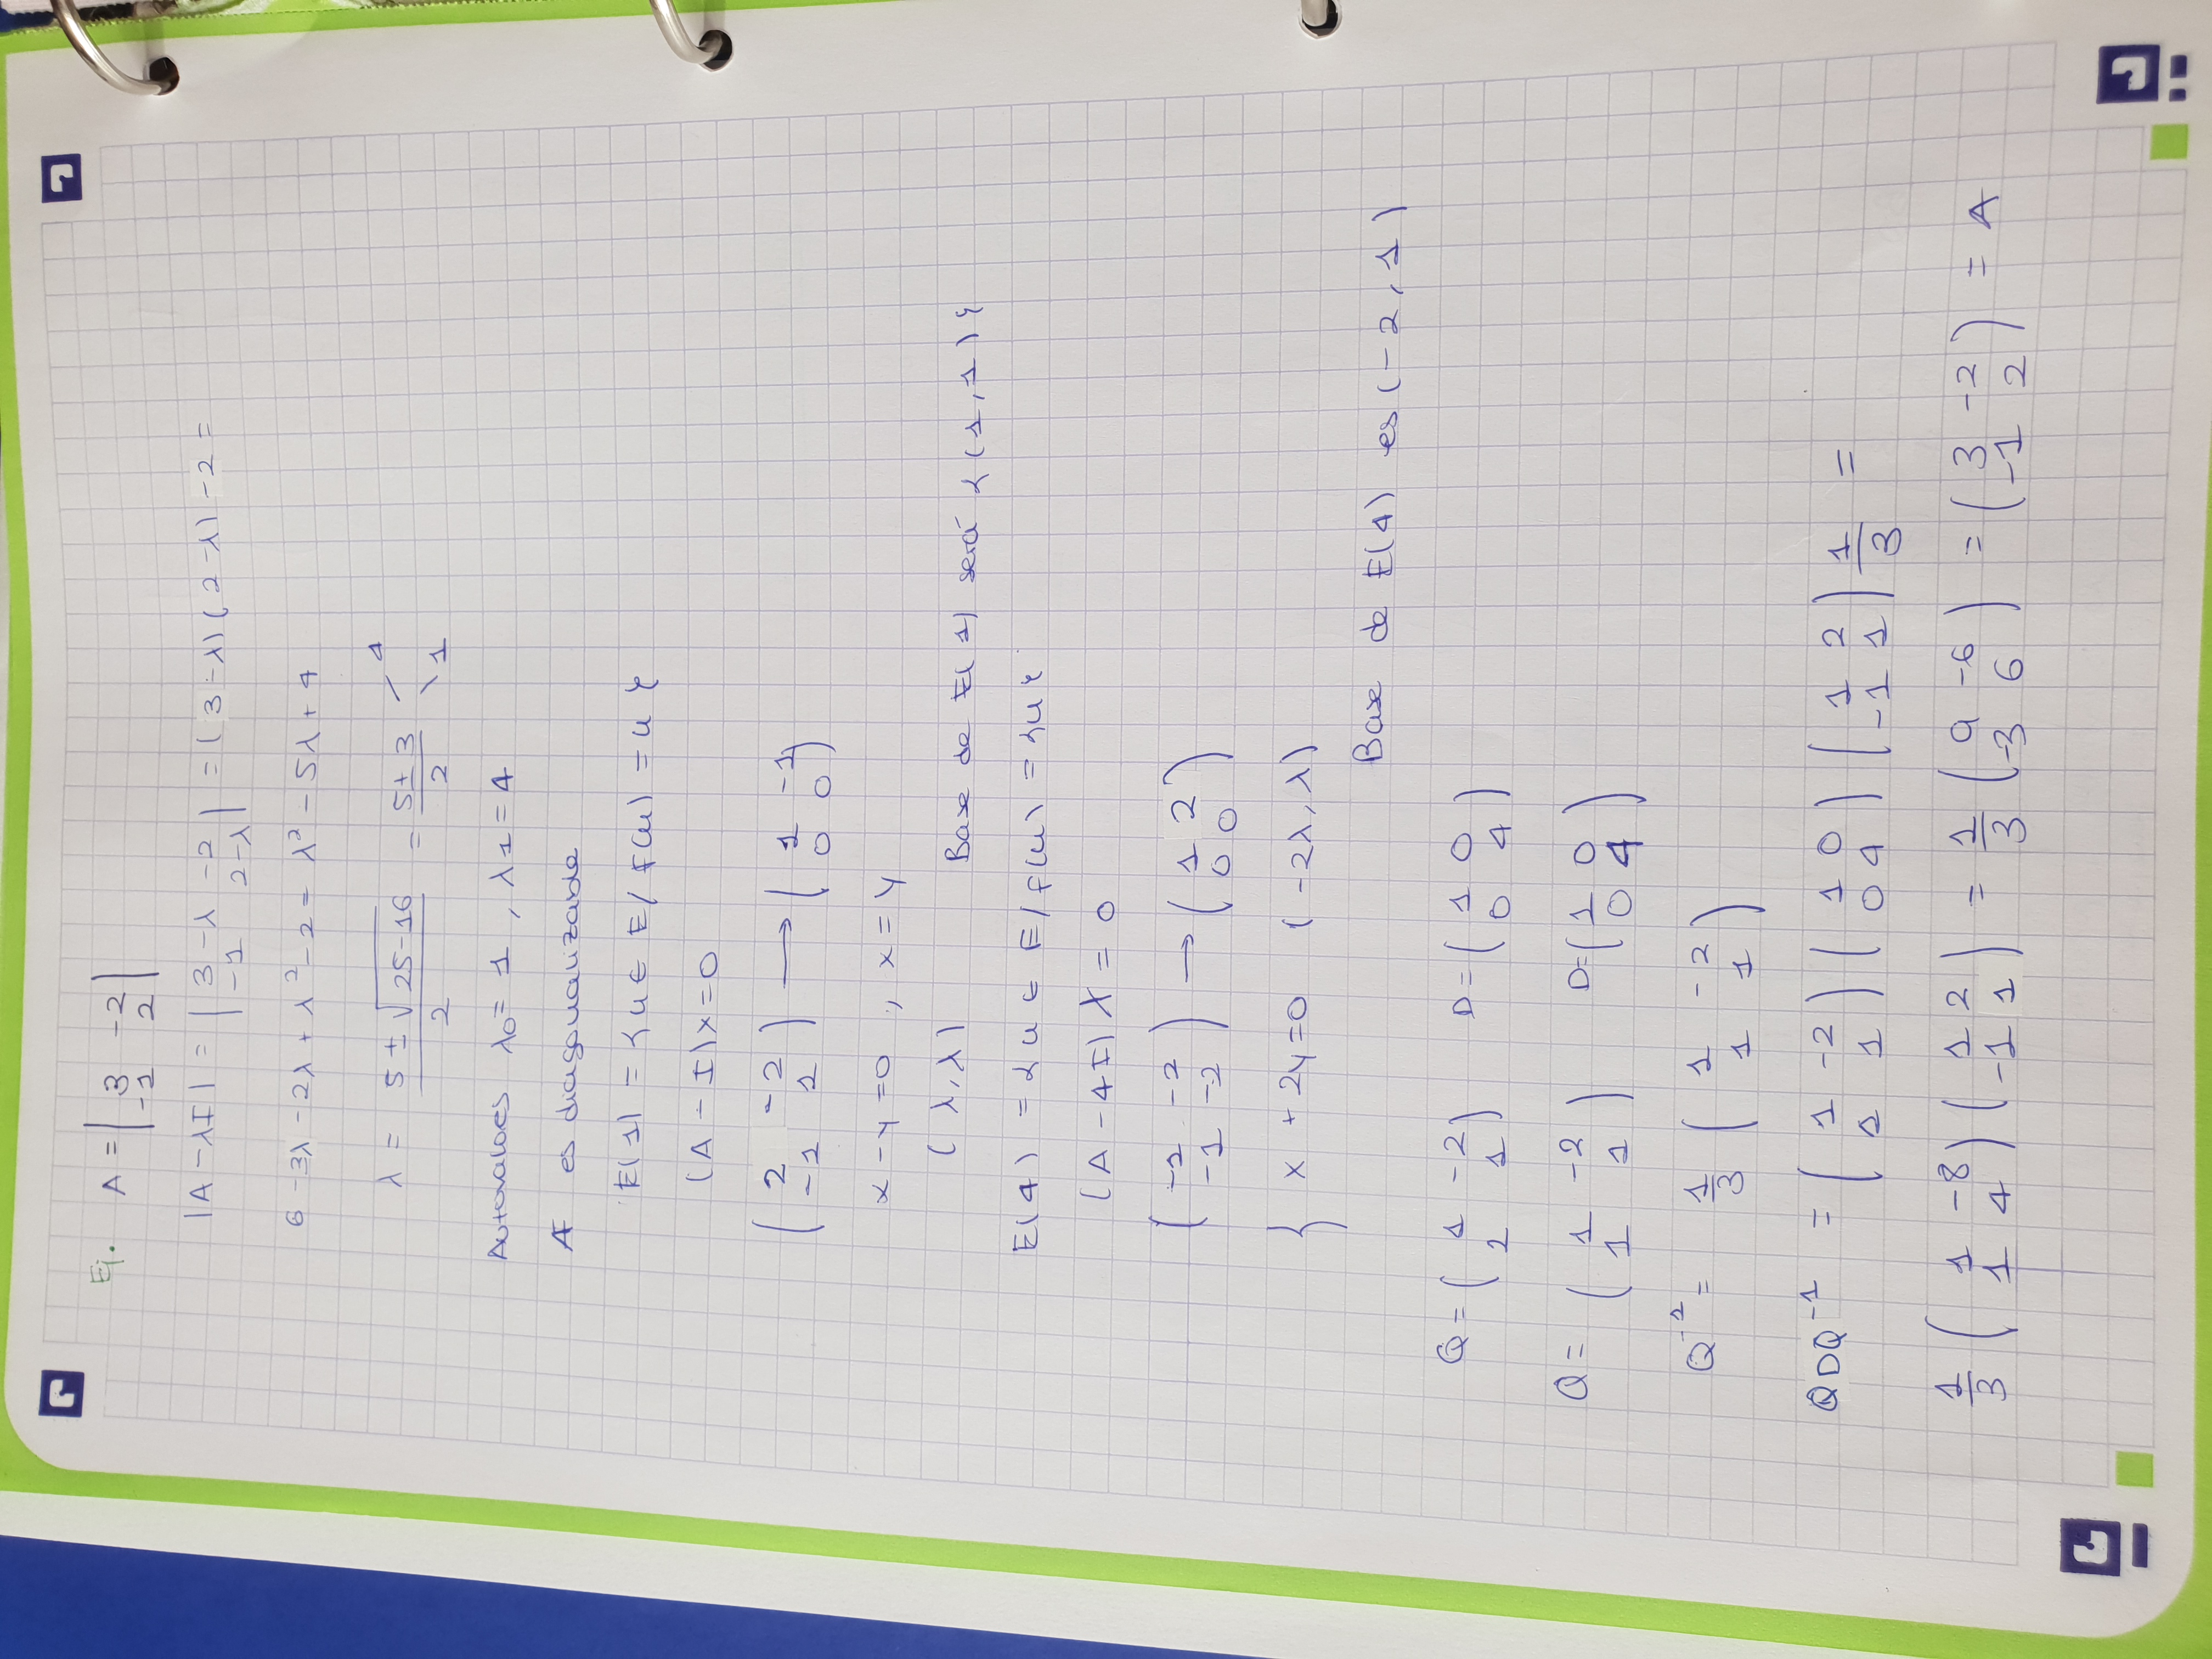 Ej. A = | 3 -2 |
| -1 2 |
|A - λI| = | 3-λ -2 | = (3-λ)(2-λ) -2 =
| -1 2-λ |
6 - 3λ - 2λ + λ² - 2 = λ² - 5λ + 4
λ = 5 ± √25-16 / 2 = 5 ± 3 / 2 / 4 \ 1
Autovalores λ0 = 1 , λ1 = 4
A es diagonalizable
E(1) = {u ∈ E / f(u) = u}
(A - I)x = 0
( 2 -2 ) → ( 1 -1 )
( -1 1 ) ( 0 0 )
x - y = 0 , x = y
(λ, λ) Base de E(1) será {(1,1)}
E(4) = {u ∈ E / f(u) = 4u}
(A - 4I)X = 0
( -1 -2 ) → ( 1 2 )
( -1 -2 ) ( 0 0 )
} x + 2y = 0 (-2λ, λ)
Base de E(4) es (-2, 1)
Q = ( 1 -2 ) D = ( 1 0 )
( 2 1 ) ( 0 4 )
Q = ( 1 -2 ) D = ( 1 0 )
( 1 1 ) ( 0 4 )
Q⁻¹ = 1/3 ( 1 -2 )
( 1 1 )
QDQ⁻¹ = ( 1 -2 ) ( 1 0 ) ( 1 2 ) 1/3 =
( 1 1 ) ( 0 4 ) ( -1 1 )
1/3 ( 1 -8 ) ( 1 2 ) = 1/3 ( 9 -6 ) = ( 3 -2 ) = A
( 1 4 ) ( -1 1 ) ( -3 6 ) ( -1 2 )